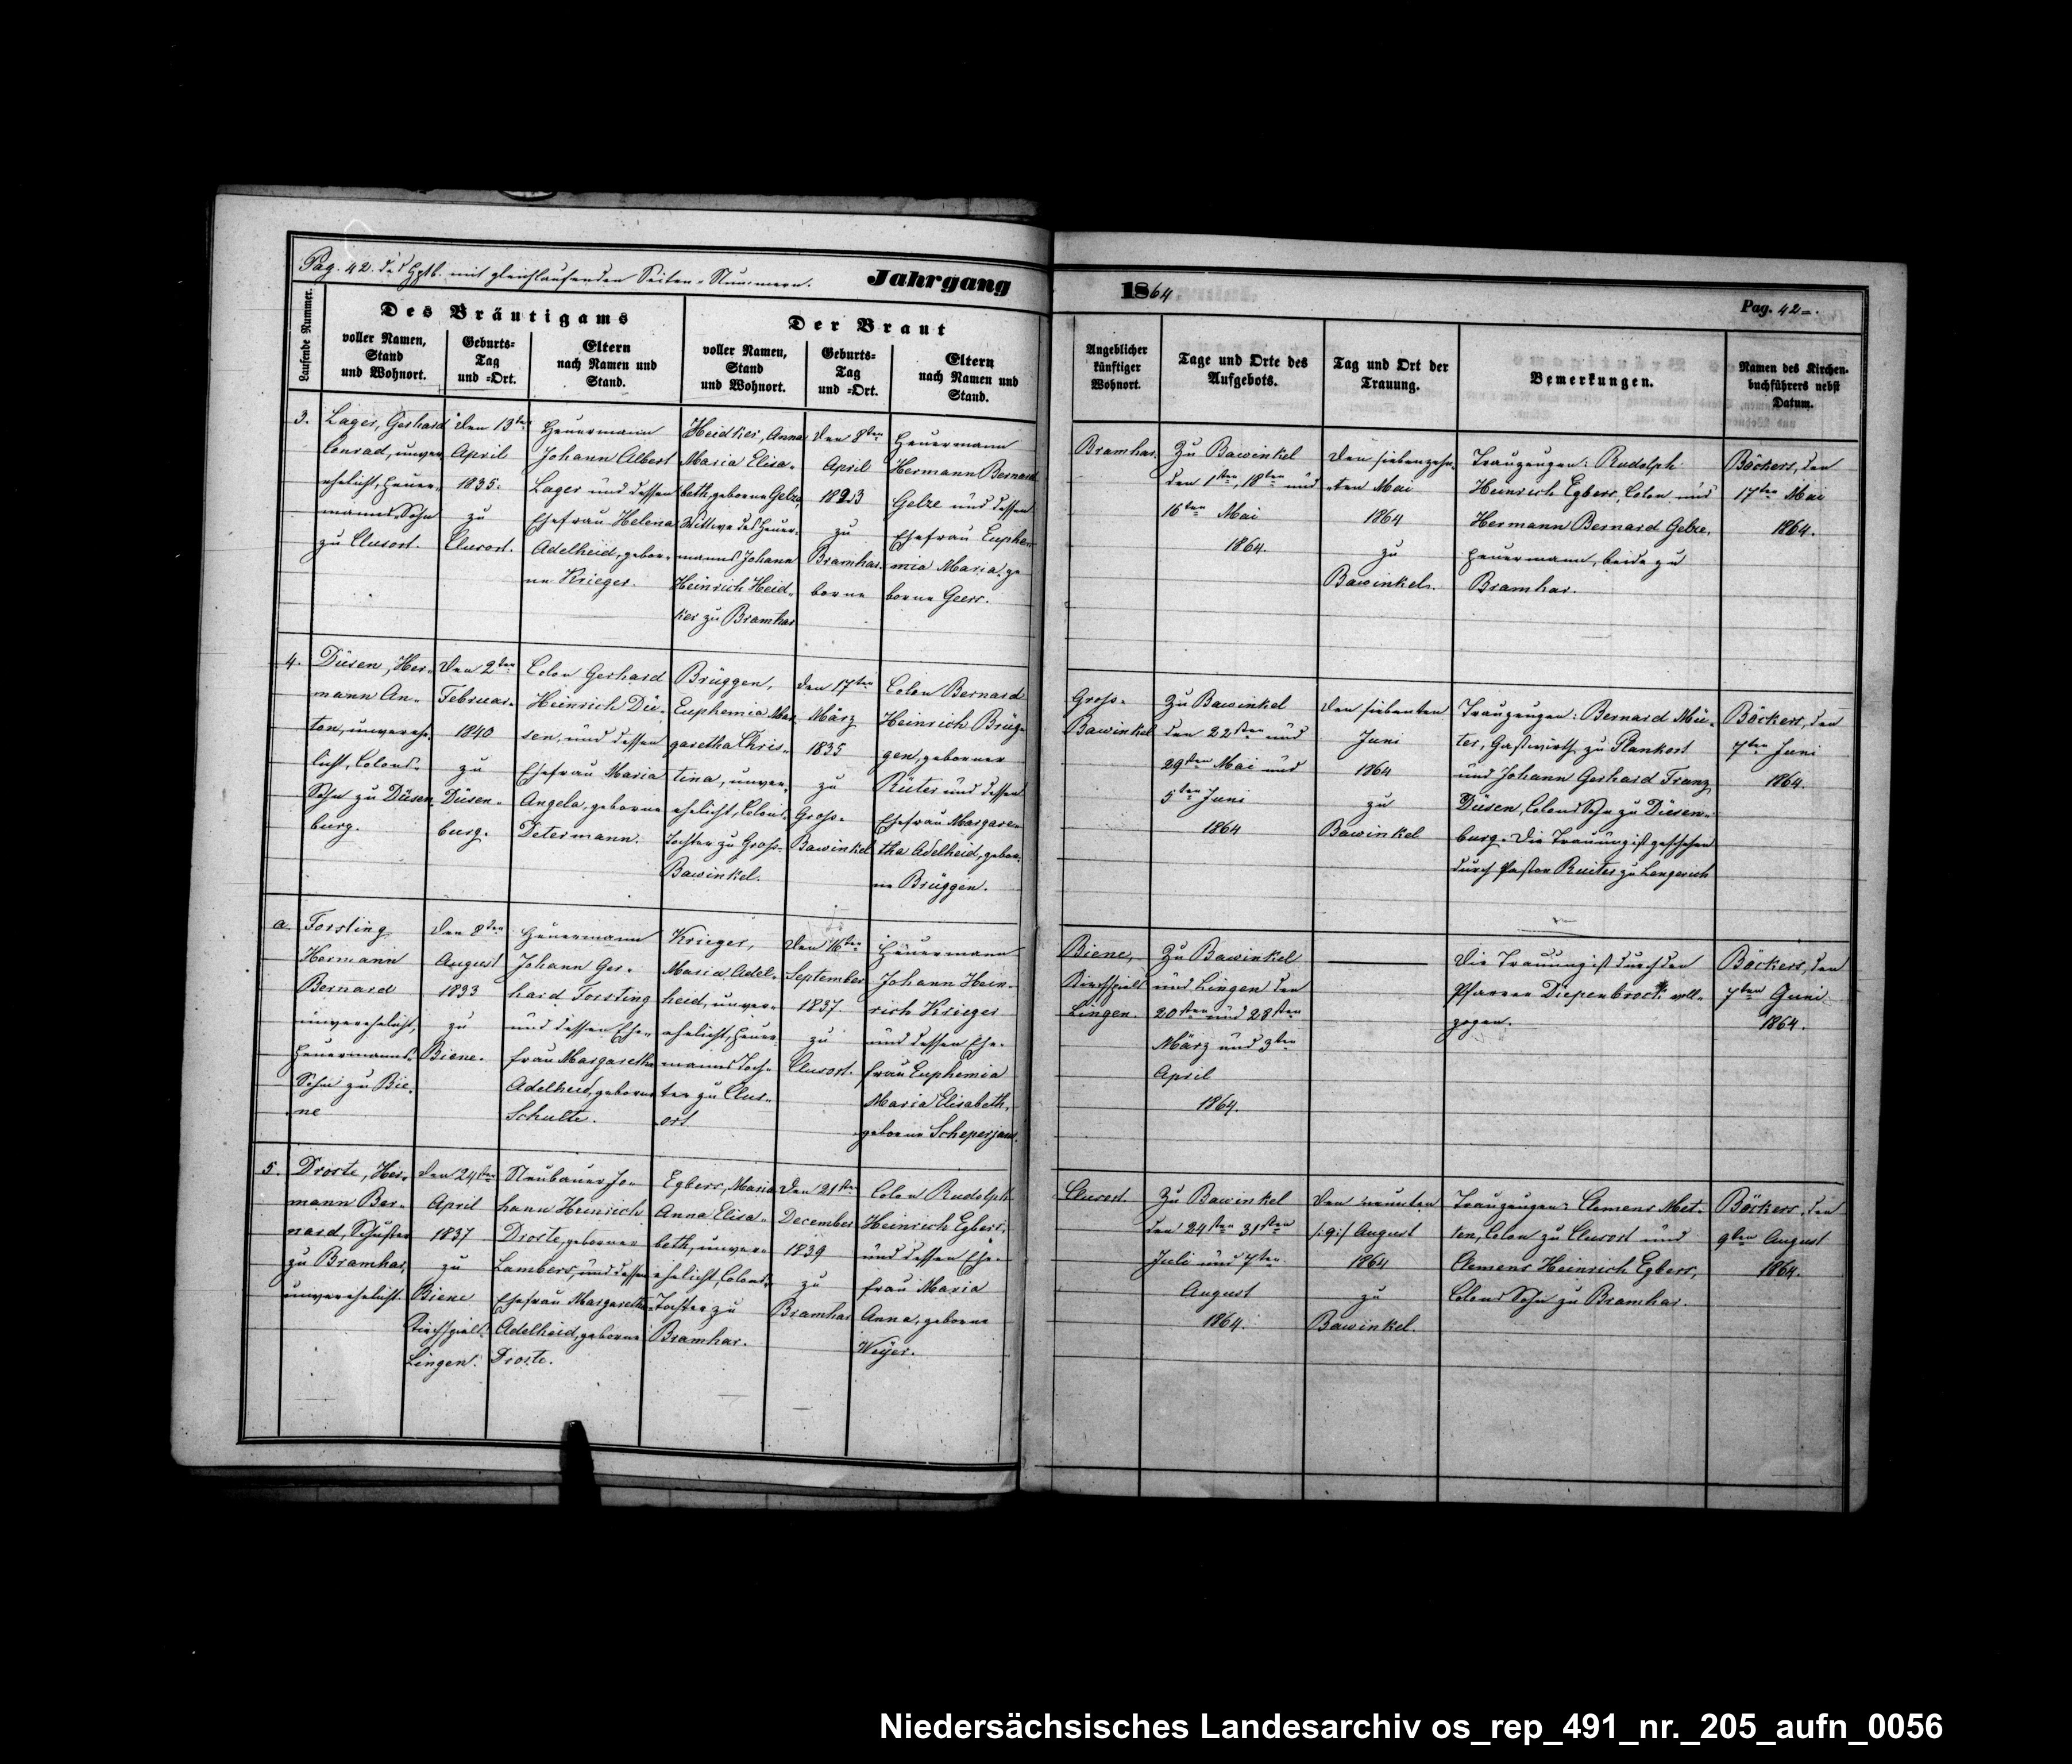 Pag. 42. des Hptb. mit gleichlaufenden Seiten-Nummern.
Jahrgang
1864
Pag. 42
Laufende Nummer.
Des Bräutigams
voller Namen,
Stand
und Wohnort.
Geburts-
Tag
und =Ort.
Eltern
nach Namen und
Stand.
Der Braut
voller Namen,
Stand
und Wohnort.
Geburts-
Tag
und =Ort.
Eltern
nach Namen und
Stand.
Angeblicher
künftiger
Wohnort.
Tage und Orte des
Aufgebots.
Tag und Ort der
Trauung.
Bemerkungen.
Namen des Kirchen-
buchführers nebst
Datum.
3.
Lager, Gerhard
Conrad, unver
ehelicht, Heuer-
manns Sohn
zu Clusort.
den 13ten
April
1835.
zu
Clusort.
Heuermann
Johann Albert
Lager und dessen
Ehefrau Helena
Adelheid, gebor-
ne Krieger.
Heidker, Anna
Maria Elisa-
beth, geborne Gelze,
Wittwe des Heuer-
manns Johann
Heinrich Heid-
ker zu Bramhar
den 8ten
April
1823
zu
Bramhar.
borne
Heuermann
Hermann Bernard
Gelze und dessen
Ehefrau Euphe-
mia Maria, ge
borne Geers.
Bramhar.
Zu Bawinkel
den 1sten, 18ten und
16ten Mai
1864.
den siebenzehn-
ten Mai
1864
zu
Bawinkel.
Trauzeugen: Rudolph
Heinrich Egbers, Colon und
Hermann Bernard Gelze,
Heuermann, beide zu
Bramhar.
Böckers, den
17ten Mai
1864.
4.
Düsen, Her-
mann An-
ton, unverehe-
licht, Colons-
Sohn zu Düsen-
burg.
den 2ten
Februar
1840
zu
Düsen-
burg.
Colon Gerhard
Heinrich Dü-
sen, und dessen
Ehefrau Maria
Angela, geborne
Determann.
Brüggen,
Euphemia Mar
garetha Chris-
tina, unver-
ehelicht, Colons-
Tochter zu Gross-
Bawinkel.
den 17ten
März
1835
zu
Gross-
Bawinkel
Colon Bernard
Heinrich Brüg-
gen, geborner
Rüter und dessen
Ehefrau Margare-
tha Adelheid, gebor-
ne Brüggen.
Gross-
Bawinkel
Zu Bawinkel
den 22sten und
29sten Mai und
5ten Juni
1864
den siebenten
Juni
1864
zu
Bawinkel
Trauzeugen: Bernard Mü-
ter, Gastwirth zu Plankort
und Johann Gerhard Franz
Düsen, Colons Sohn zu Düsen-
burg. Die Trauung ist geschehen
durch Pastor Rüter zu Lengerich
Böckers, den
7ten Juni
1864.
a.
Forsting
Hermann
Bernard
unverehelicht,
Heuermanns-
Sohn zu Bie-
ne
den 8ten
August
1833
zu
Biene.
Heuermann
Johann Ger-
hard Forsting
und dessen Ehe-
frau Margaretha
Adelheid, geborne
Schulte.
Krieger,
Maria Adel-
heid, unver-
ehelicht, Heuer-
manns Toch-
ter zu Clus-
ort
den 16ten
September
1837.
zu
Clusort.
Heuermann
Johann Hein-
rich Krieger
und dessen Ehe-
frau Euphemia
Maria Elisabeth,
geborne Scheperjans.
Biene,
Kirchspiels
Lingen.
Zu Bawinkel
und Lingen den
20sten und 28sten
März und 3ten
April
1864.
Die Trauung ist durch den
Pfarrer Diepenbrock voll-
zogen.
Böckers, den
7ten Juni
1864.
5.
Droste, Her-
mann Ber-
nard, Schuster
zu Bramhar,
unverehelicht.
den 24sten
April
1837
zu
Biene
Kirchspiels
Lingen.
Neubauer Jo-
hann Heinrich
Droste, geborner
Lambers, und dessen
Ehefrau Margaretha
Adelheid, geborne
Droste.
Egbers, Maria
Anna Elisa-
beth, unver-
ehelicht, Colons-
Tochter zu
Bramhar.
den 21sten
December
1839
zu
Bramhar
Colon Rudolph
Heinrich Egbers,
und dessen Ehe-
frau Maria
Anna, geborne
Weÿer.
Clusort.
Zu Bawinkel
den 24sten 31sten
Juli und 7ten
August
1864.
den neunten
/:9:/ August
1864
zu
Bawinkel.
Trauzeugen: Clemens Met-
ten, Colon zu Clusort und
Clemens Heinrich Egbers,
Colons Sohn zu Bramhar.
Böckers, den
9ten August
1864.
Niedersächsisches Landesarchiv os_rep_491_nr._205_aufn_0056